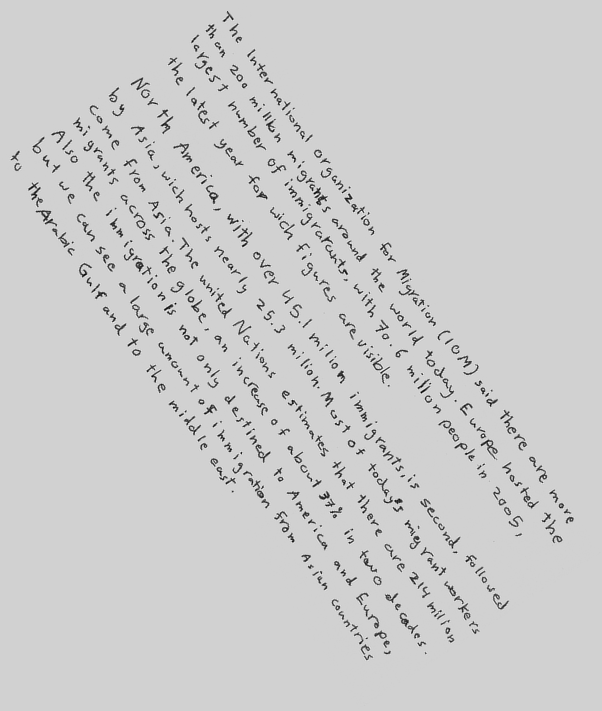 The International organization for Migration (IOM) said there are more
than 200 million migrants around the world today. Europe hosted the
largest number of immigrarants, with 70.6 million people in 2005,
the latest year for wich figures are visible.
North America, with over 45.1 milion immigrants, is second, followed
by Asia, wich hosts nearly 25.3 milion. Most of today's migrant workers
come from Asia. The united Nations estimates that there are 214 milion
migrants across the globe, an increase of about 37% in two decades.
Also the immigration is not only destined to America and Europe,
but we can see a large amount of immigration from Asian countries
to the Arabic Gulf and to the middle east.